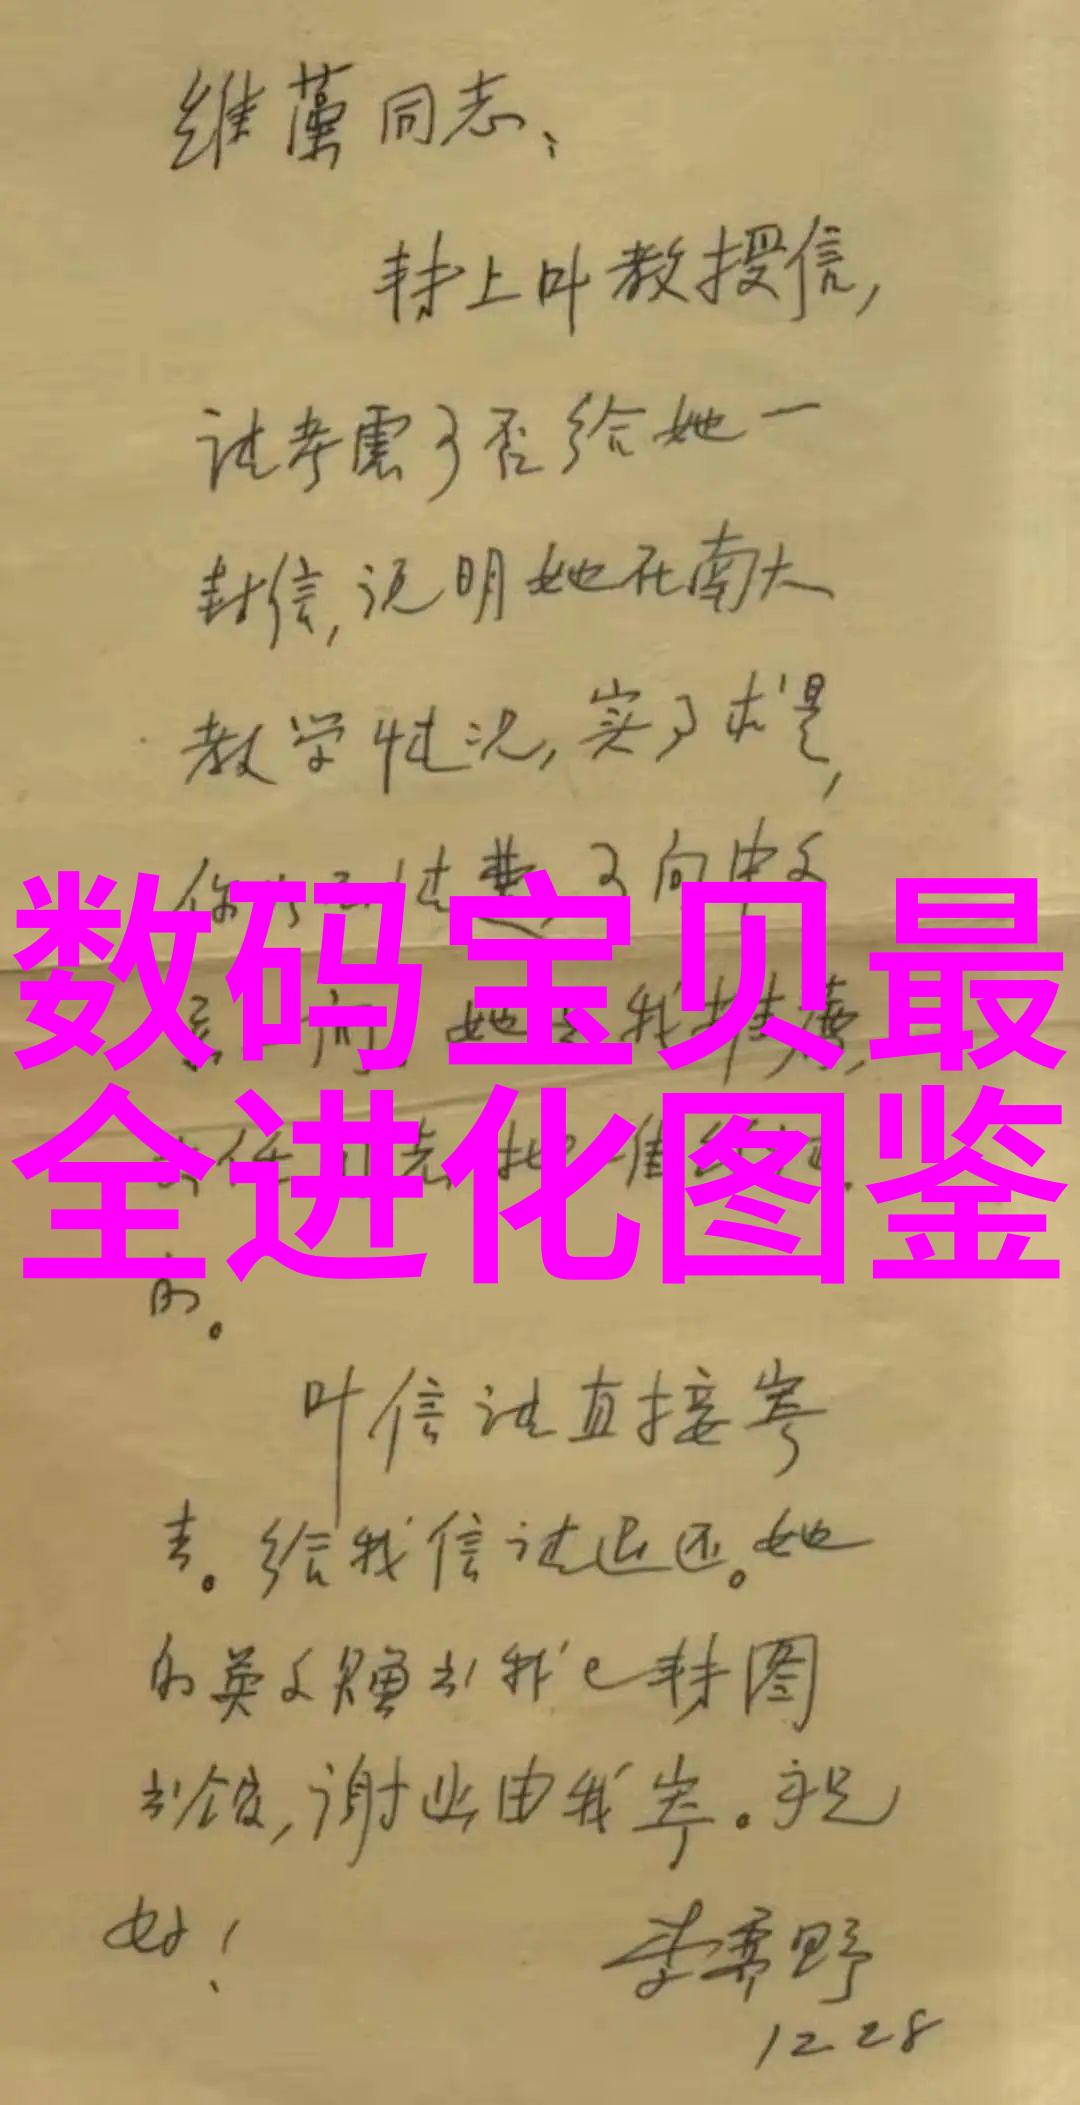 维藻同志:
转上叶教授信,
请考虑可否给她一
封信,说明她在南大
教学情况,实事求是,
你 过费,可向中文
数码宝贝最
她 我推荐,
全进化图鉴
的。
叶信请直接寄
去。给我信请退还。她
的英文赠书我已转图
书馆,谢也由我寄。祝
好!
李霁野
12 28